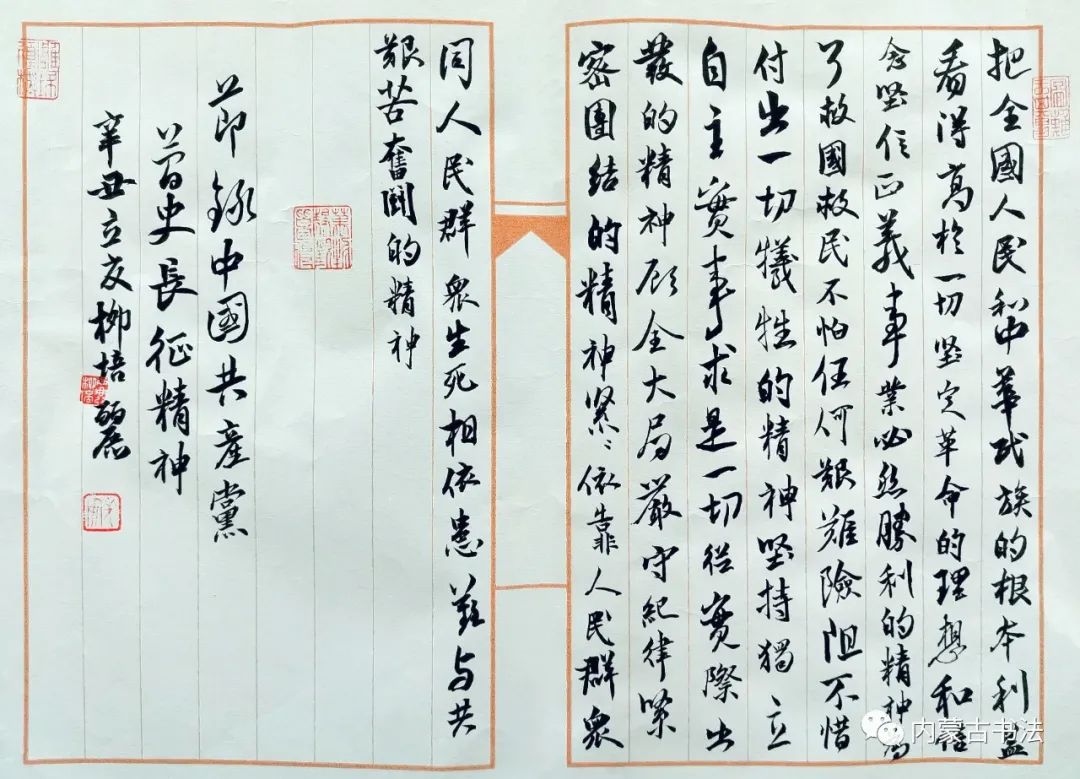 把全國人民和中華民族的根本利益
看得高於一切堅定革命的理想和信
念堅信正義事業必然勝利的精神為
了救國救民不怕任何艱難險阻不惜
付出一切犧牲的精神堅持獨立
自主實事求是一切從實際出
發的精神顾全大局嚴守紀律緊
密團結的精神緊〻依靠人民群衆
同人民群衆生死相依患難与共
艱苦奮鬭的精神
節錄中國共產黨
黨史長征精神
辛丑立夏柳培麗
内蒙古书法